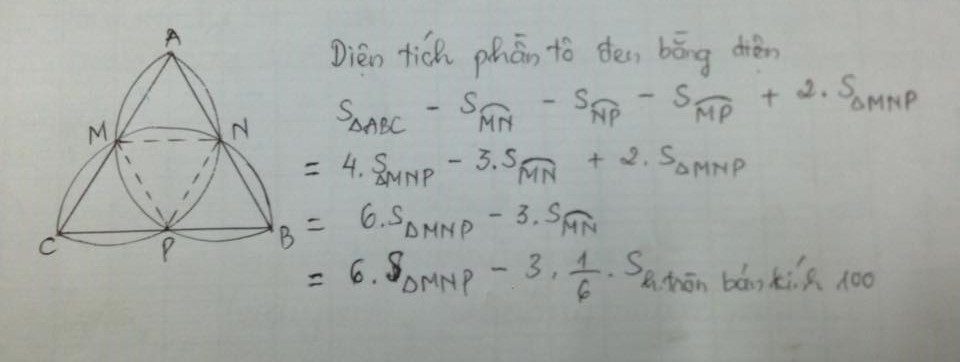 A
M
N
C
P
B
Diện tích phần tô đen bằng diện
S△ABC - S⌒MN - S⌒NP - S⌒MP + 2. S△MNP
= 4. S△MNP - 3. S⌒MN + 2. S△MNP
= 6. S△MNP - 3. S⌒MN
= 6. S△MNP - 3. 1/6 . S h.tròn bán kính 100